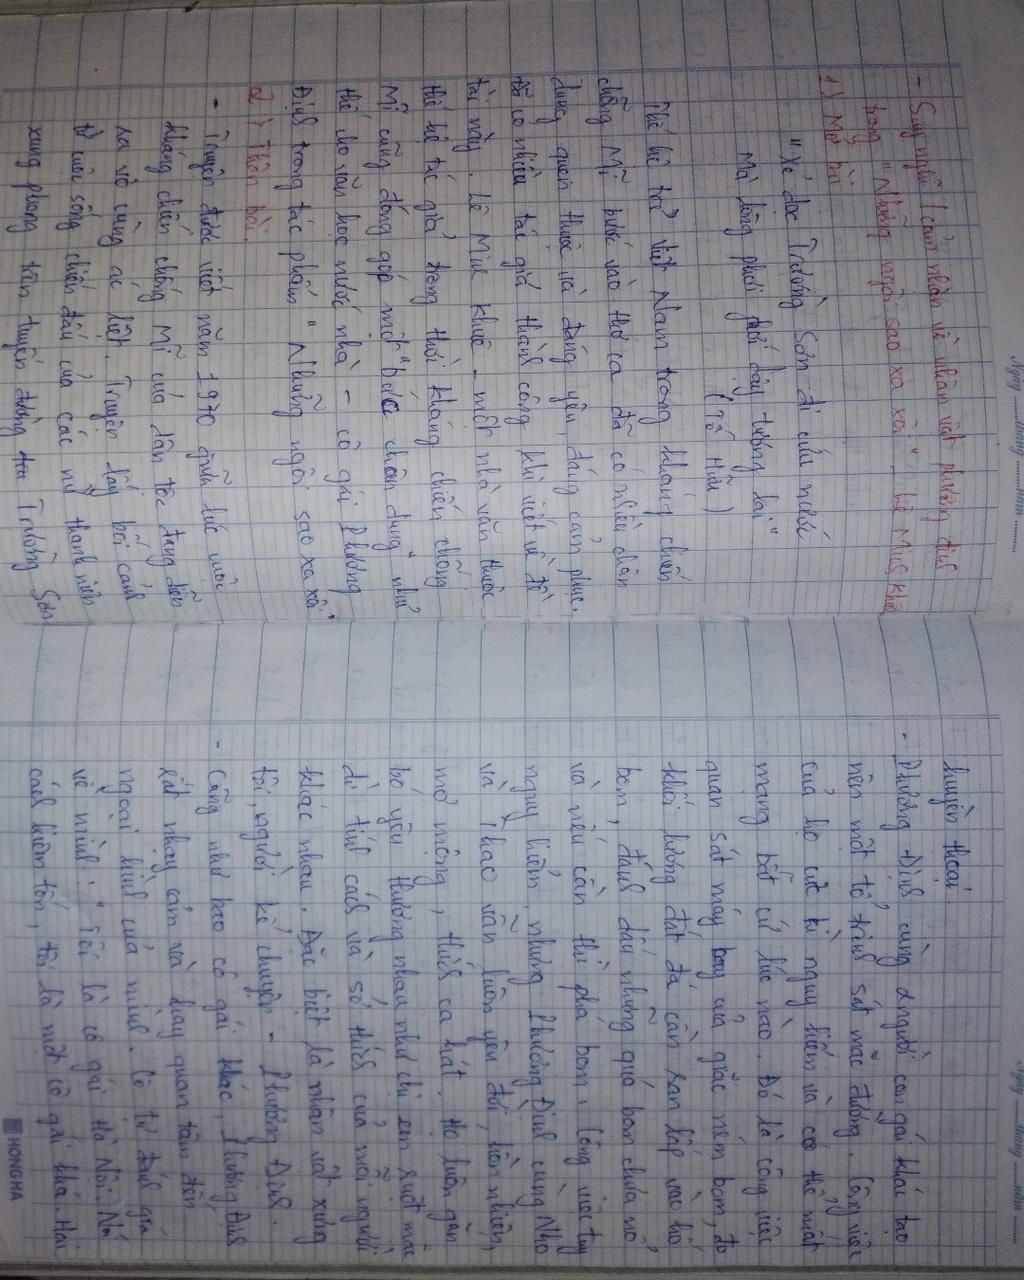 Ngày ........ tháng ........ năm ........
- Suy nghĩ / cảm nhận về nhân vật phương định
trong "Những ngôi sao xa xôi", Lê Minh Khuê
1) Mở bài
"Xẻ dọc Trường Sơn đi cứu nước
Mà lòng phơi phới dậy tương lai"
(Tố Hữu)
Thế hệ trẻ Việt Nam trong kháng chiến
chống Mĩ bước vào thơ ca đã có nhiều chân
dung quen thuộc và đáng yêu, đáng cảm phục.
Đã có nhiều tác giả thành công khi viết về đề
tài này. Lê Minh Khuê - một nhà văn thuộc
thế hệ tác giả trong thời kháng chiến chống
Mĩ cũng đóng góp một "bức chân dung" như
thế cho văn học nước nhà - cô gái Phương
Định trong tác phẩm "Những ngôi sao xa xôi"
2) Thân bài.
- Truyện được viết năm 1970 giữa lúc cuộc
kháng chiến chống Mĩ của dân tộc đang diễn
ra vô cùng ác liệt. Truyện lấy bối cảnh
từ cuộc sống chiến đấu của các nữ thanh niên
xung phong trên tuyến đường Trường Sơn
Ngày ........ tháng ........ năm ........
huyền thoại
- Phương Định cùng 2 người con gái khác tạo
nên một tổ trinh sát mặc đường. Công việc
của họ cực kì nguy hiểm và có thể mất
mạng bất cứ lúc nào. Đó là công việc
quan sát máy bay của giặc ném bom, đo
khối lượng đất đá cần san lấp vào hố
bom, đánh dấu những quả bom chưa nổ
và nếu cần thì phá bom. Công việc tuy
nguy hiểm, nhưng Phương Định cùng Nho
và Thao vẫn luôn yêu đời, hồn nhiên,
mơ mộng, thích ca hát. Họ luôn gắn
bó yêu thương nhau như chị em ruột mặc
dù tính cách và sở thích của mỗi người
khác nhau. Đặc biệt là nhân vật xưng
tôi, người kể chuyện - Phương Định.
- Cũng như bao cô gái khác, Phương Định
rất nhạy cảm và hay quan tâm đến
ngoại hình của mình. Cô tự đánh giá
về mình: "Tôi là cô gái Hà Nội. Nói
cách khiêm tốn, tôi là một cô gái khá. Hai
HONG HA